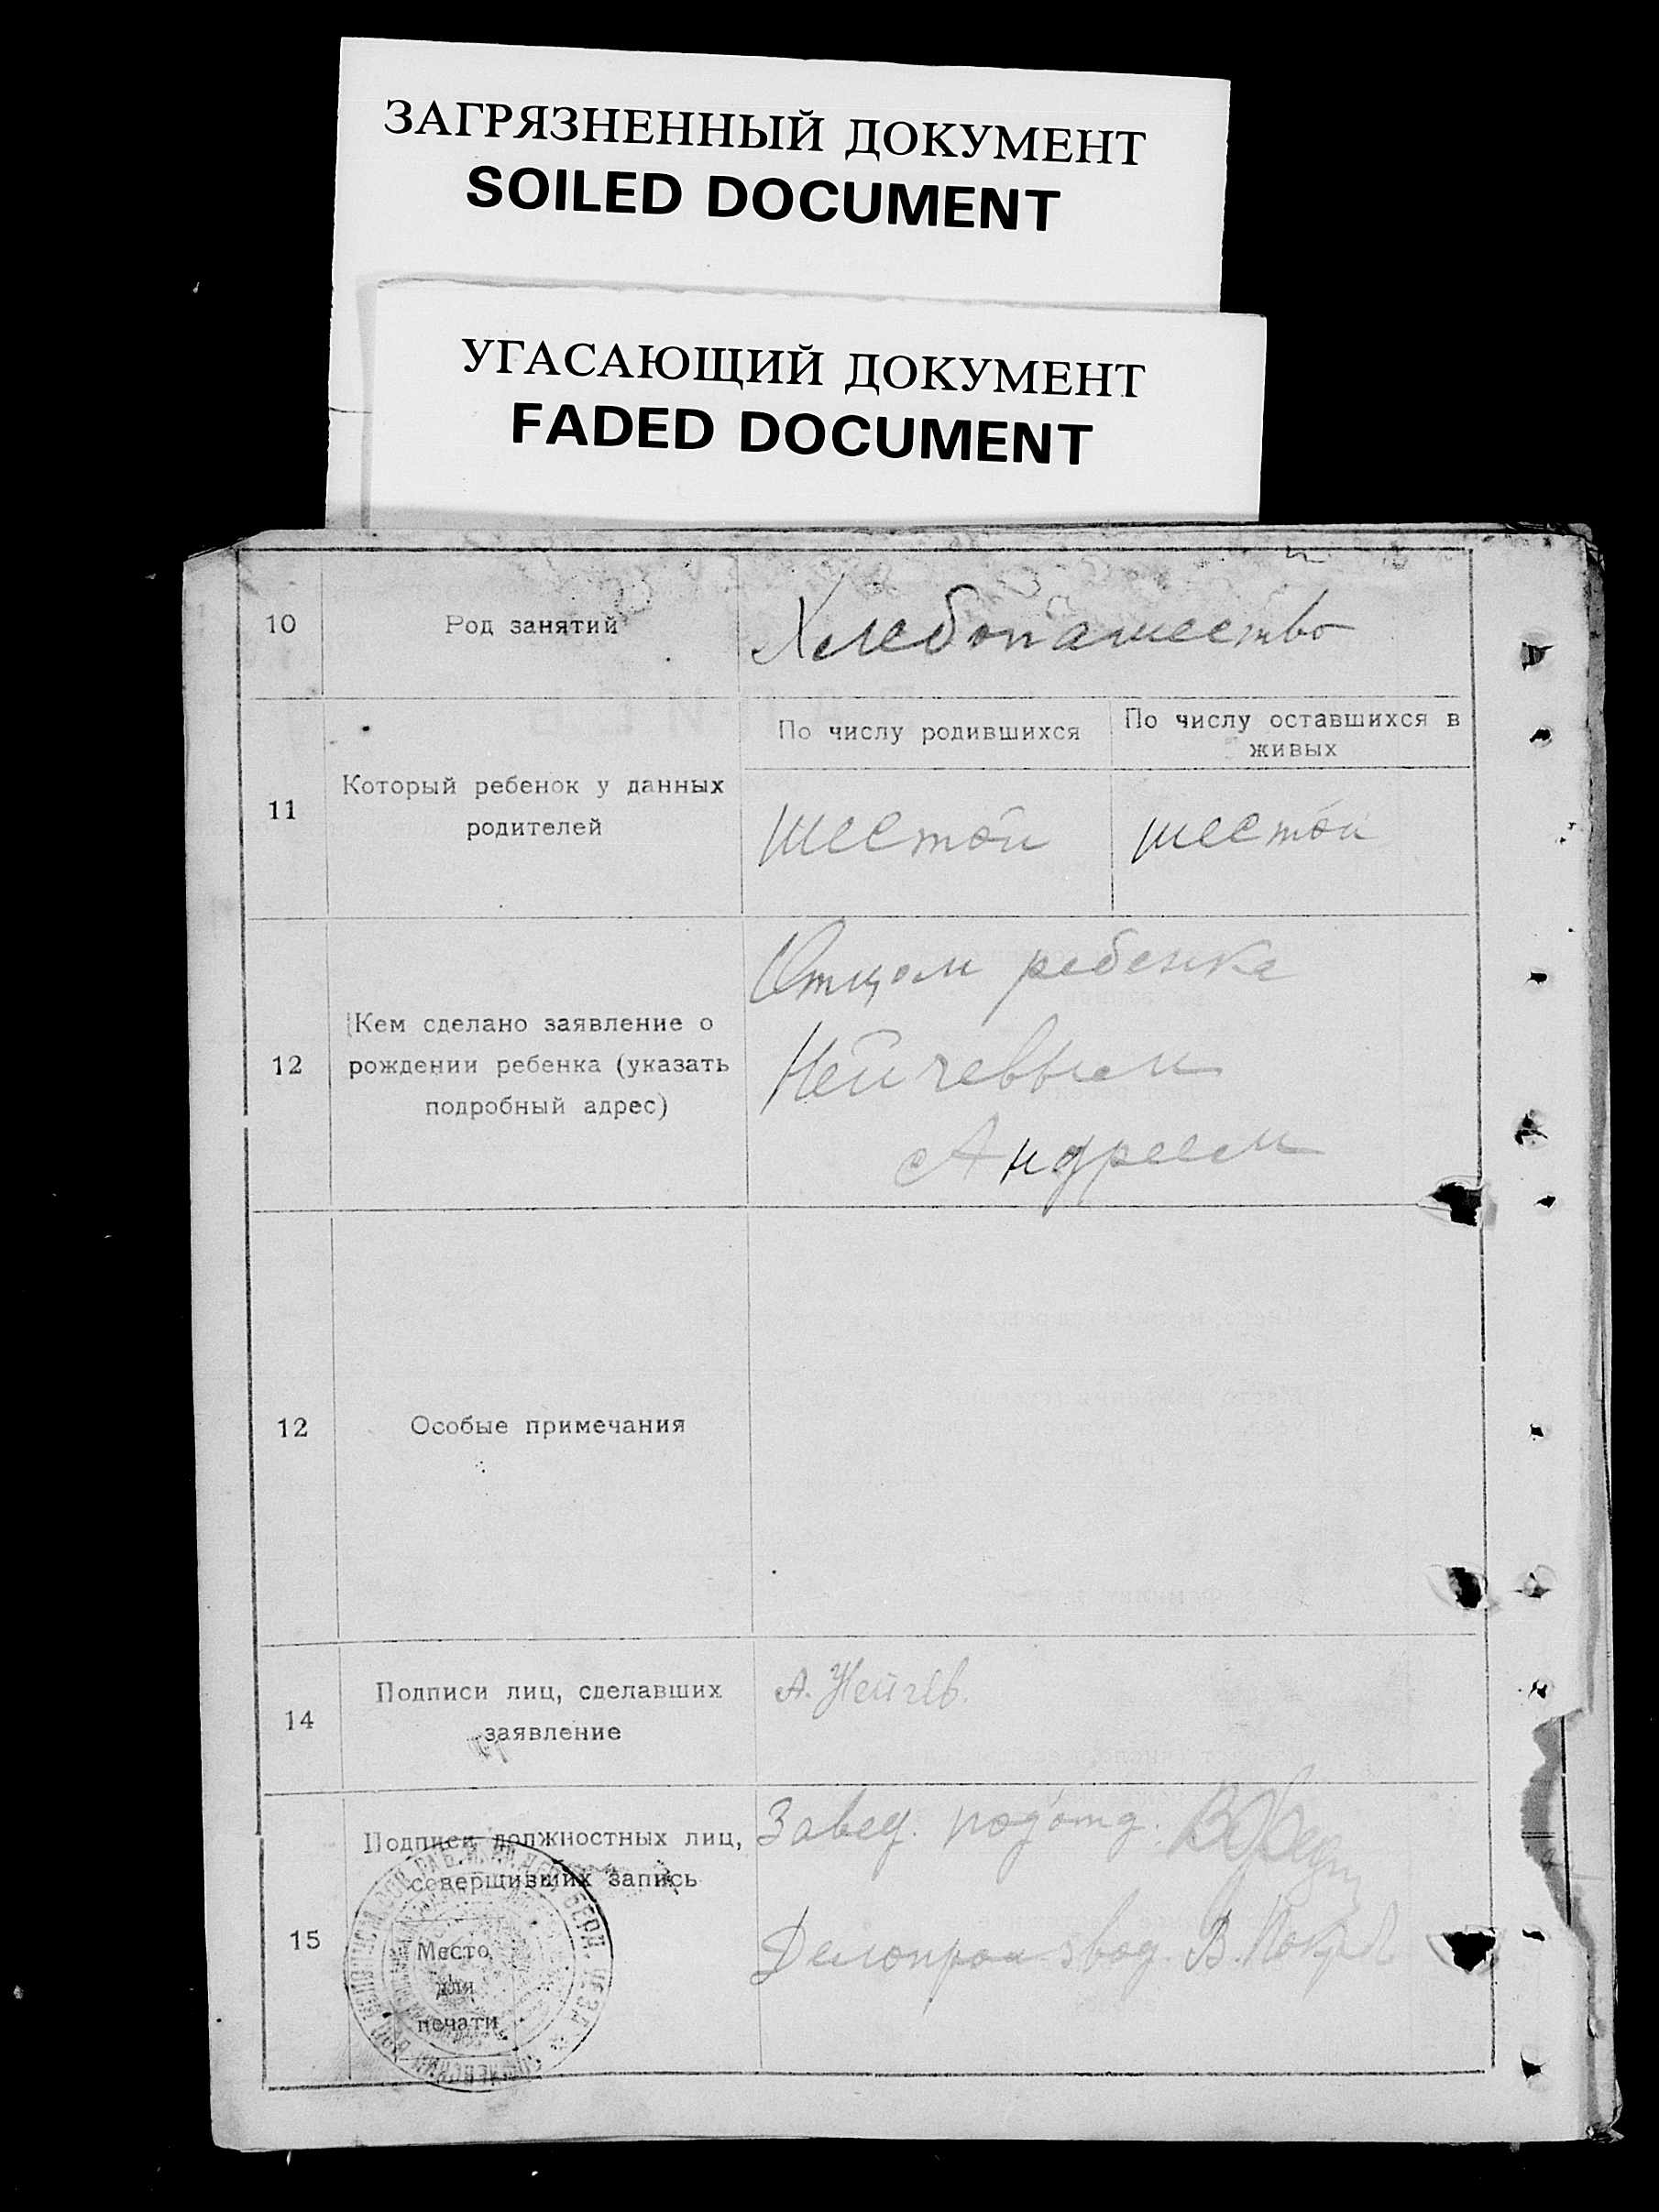 ЗАГРЯЗНЕННЫЙ ДОКУМЕНТ
SOILED DOCUMENT
УГАСАЮЩИЙ ДОКУМЕНТ
FADED DOCUMENT
10
Род занятий
Хлебопашество
11
Который ребенок у данных
родителей
По числу родившихся
По числу оставшихся в
живых
шестой
шестой
12
Кем сделано заявление о
рождении ребенка (указать
подробный адрес)
Отцом ребенка
Нейчевым
Андреем
12
Особые примечания
14
Подписи лиц, сделавших
заявление
А. Нейчев.
15
Подписи должностных лиц,
совершивших запись
Место
для
печати
Завед. подотд.
Делопроизвод. В.